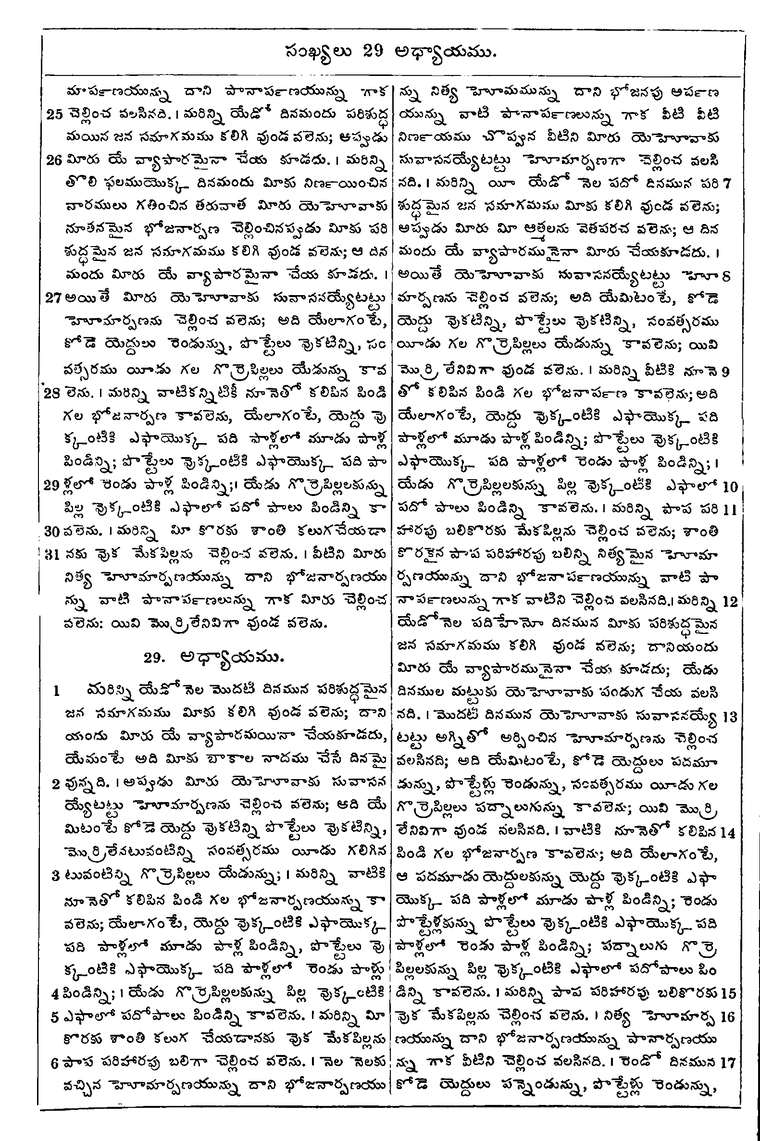 సంఖ్యలు 29 అధ్యాయము.
మార్పణయున్ను దాని పానార్పణయున్ను గాక
25 చెల్లించ వలసినది. । మరిన్ని యేడో దినమందు పరిశుద్ధ
మయిన జన సమాగమము కలిగి వుండ వలెను; అప్వుడు
26 మీరు యే వ్యాపారమైనా చేయ కూడదు. । మరిన్ని
తొలి ఫలముయొక్క దినమందు మీకు నిర్ణయించిన
వారములు గతించిన తరువాత మీరు యెహోవాకు
నూతనమైన భోజనార్పణ చెల్లించినప్వుడు మీకు పరి
శుద్ధమైన జన సమాగమము కలిగి వుండ వలెను; ఆ దిన
మందు మీరు యే వ్యాపారమైనా చేయ కూడదు. ।
27 అయితే మీరు యెహోవాకు సువాసనయ్యేటట్టు
హోమార్పణను చెల్లించ వలెను; అది యేలాగంటే,
కోడె యెద్దులు రెండున్ను, పొట్టేలు వుకటిన్ని, సం
వత్సరము యీడు గల గొర్రెపిల్లలు యేడున్ను కావ
28 లెను. । మరిన్ని వాటికన్నిటికీ నూనెతో కలిపిన పిండి
గల భోజనార్పణ కావలెను, యేలాగంటే, యెద్దు వు
క్కంటికి ఎఫాయొక్క పది పాళ్లలో మూడు పాళ్ల
పిండిన్ని; పొట్టేలు వుక్కంటికి ఎఫాయొక్క పది పా
29 ళ్లలో రెండు పాళ్ల పిండిన్ని;। యేడు గొర్రెపిల్లలకున్ను
పిల్ల వుక్కంటికి ఎఫాలో పదో పాలు పిండిన్ని కా
30 వలెను. । మరిన్ని మీ కొరకు శాంతి కలుగచేయడా
31 నకు వుక మేకపిల్లను చెల్లించ వలెను. । వీటిని మీరు
నిత్య హోమార్పణయున్ను దాని భోజనార్పణయు
న్ను వాటి పానార్పణలున్ను గాక మీరు చెల్లించ
వలెను: యివి మొర్రిలేనివిగా వుండ వలెను.
29. అధ్యాయము.
1 మరిన్ని యేడో నెల మొదటి దినమున పరిశుద్ధమైన
జన సమాగమము మీకు కలిగి వుండ వలెను; దాని
యందు మీరు యే వ్యాపారమయినా చేయకూడదు,
యేమంటే అది మీకు బాకాల నాదము చేసే దినమై
2 వున్నది. । అప్వుడు మీరు యెహోవాకు సువాసన
య్యేటట్టు హోమార్పణను చెల్లించ వలెను; అది యే
మిటంటే కోడె యెద్దు వుకటిన్ని పొట్టేలు వుకటిన్ని,
మొర్రిలేనటువంటిన్ని సంవత్సరము యీడు గలిగిన
3 టువంటిన్ని గొర్రెపిల్లలు యేడున్ను; । మరిన్ని వాటికి
నూనెతో కలిపిన పిండి గల భోజనార్పణయున్ను కా
వలెను; యేలాగంటే, యెద్దు వుక్కంటికి ఎఫాయొక్క
పది పాళ్లలో మూడు పాళ్ల పిండిన్ని, పొట్టేలు వు
క్కంటికి ఎఫాయొక్క పది పాళ్లలో రెండు పాళ్లు
4 పిండిన్ని; । యేడు గొర్రెపిల్లలకున్ను పిల్ల వుక్కంటికి
5 ఎఫాలో పదోపాలు పిండిన్ని కావలెను. । మరిన్ని మీ
కొరకు శాంతి కలుగ చేయడానకు వుక మేకపిల్లను
6 పాప పరిహారపు బలిగా చెల్లించ వలెను. । నెల నెలకు
వచ్చిన హోమార్పణయున్ను దాని భోజనార్పణయు
న్ను నిత్య హోమమున్ను దాని భోజనపు అర్పణ
యున్ను వాటి పానార్పణలున్ను గాక వీటి వీటి
నిర్ణయము చొప్పున వీటిని మీరు యెహోవాకు
సువాసనయ్యేటట్టు హోమార్పణగా చెల్లించ వలసి
నది. । మరిన్ని యీ యేడో నెల పదో దినమున పరి 7
శుద్ధమైన జన సమాగమము మీకు కలిగి వుండ వలెను;
అప్వుడు మీరు మీ ఆత్మలను వెతపరచ వలెను; ఆ దిన
మందు యే వ్యాపారమునైనా మీరు చేయకూడదు. ।
అయితే యెహోవాకు సువాసనయ్యేటట్టు హో 8
మార్పణను చెల్లించ వలెను; అది యేమిటంటే, కోడె
యెద్దు వుకటిన్ని, పొట్టేలు వుకటిన్ని, సంవత్సరము
యీడు గల గొర్రెపిల్లలు యేడున్ను కావలెను; యివి
మొర్రి లేనివిగా వుండ వలెను. । మరిన్ని వీటికి నూనె 9
తో కలిపిన పిండి గల భోజనార్పణ కావలెను; అది
యేలాగంటే, యెద్దు వుక్కంటికి ఎఫాయొక్క పది
పాళ్లలో మూడు పాళ్ల పిండిన్ని; పొట్టేలు వుక్కంటికి
ఎఫాయొక్క పది పాళ్లలో రెండు పాళ్ల పిండిన్ని; ।
యేడు గొర్రెపిల్లలకున్ను పిల్ల వుక్కంటికి ఎఫాలో 10
పదో పాలు పిండిన్ని కావలెను. । మరిన్ని పాప పరి 11
హారపు బలికొరకు మేకపిల్లను చెల్లించ వలెను; శాంతి
కొరకైన పాప పరిహారపు బలిన్ని నిత్యమైన హోమా
ర్పణయున్ను దాని భోజనార్పణయున్ను వాటి పా
నార్పణలున్ను గాక వాటిని చెల్లించ వలసినది. । మరిన్ని 12
యేడోనెల పదిహేనో దినమున మీకు పరిశుద్ధమైన
జన సమాగమము కలిగి వుండ వలెను; దానియందు
మీరు యే వ్యాపారమునైనా చేయ కూడదు; యేడు
దినముల మట్టుకు యెహోవాకు పండుగ చేయ వలసి
నది. । మొదటి దినమున యెహోవాకు సువాసనయ్యే 13
టట్టు అగ్నితో అర్పించిన హోమార్పణను చెల్లించ
వలసినది; అది యేమిటంటే, కోడె యెద్దులు పదమూ
డున్ను, పొట్టేళ్లు రెండున్ను, సంవత్సరము యీడు గల
గొర్రెపిల్లలు పద్నాలుగున్ను కావలెను; యివి మొర్రి
లేనివిగా వుండ వలసినది. । వాటికి నూనెతో కలిపిన 14
పిండి గల భోజనార్పణ కావలెను; అది యేలాగంటే,
ఆ పదమూడు యెద్దులకున్ను యెద్దు వుక్కంటికి ఎఫా
యొక్క పది పాళ్లలో మూడు పాళ్ల పిండిన్ని; రెండు
పొట్టేళ్లకున్ను పొట్టేలు వుక్కంటికి ఎఫాయొక్క పది
పాళ్లలో రెండు పాళ్ల పిండిన్ని; పద్నాలుగు గొర్రె
పిల్లలకున్ను పిల్ల వుక్కంటికి ఎఫాలో పదోపాలు పిం
డిన్ని కావలెను. । మరిన్ని పాప పరిహారపు బలికొరకు 15
వుక మేకపిల్లను చెల్లించ వలెను. । నిత్య హోమార్ప 16
ణయున్ను దాని భోజనార్పణయున్ను పానార్పణయు
న్ను గాక వీటిని చెల్లించ వలసినది. । రెండో దినమున 17
కోడె యెద్దులు పన్నెండున్ను, పొట్టేళ్లు రెండున్ను,